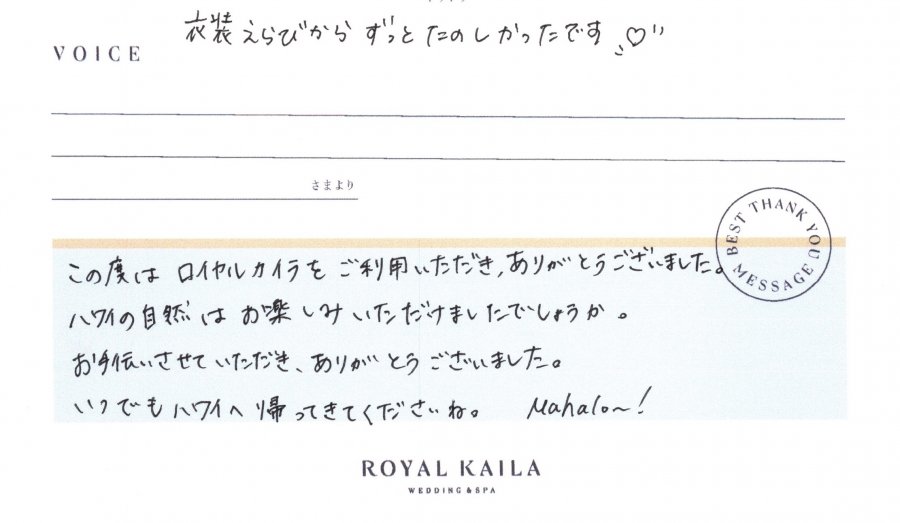 衣装えらびから ずっと たのしかったです♡
VOICE
さまより
BEST THANK YOU MESSAGE
この度は ロイヤルカイラを ご利用いただき、ありがとうございました。
ハワイの自然は お楽しみいただけましたでしょうか。
お手伝いさせていただき、ありがとうございました。
いつでもハワイへ帰ってきてくださいね。 Mahalo~!
ROYAL KAILA
WEDDING & SPA